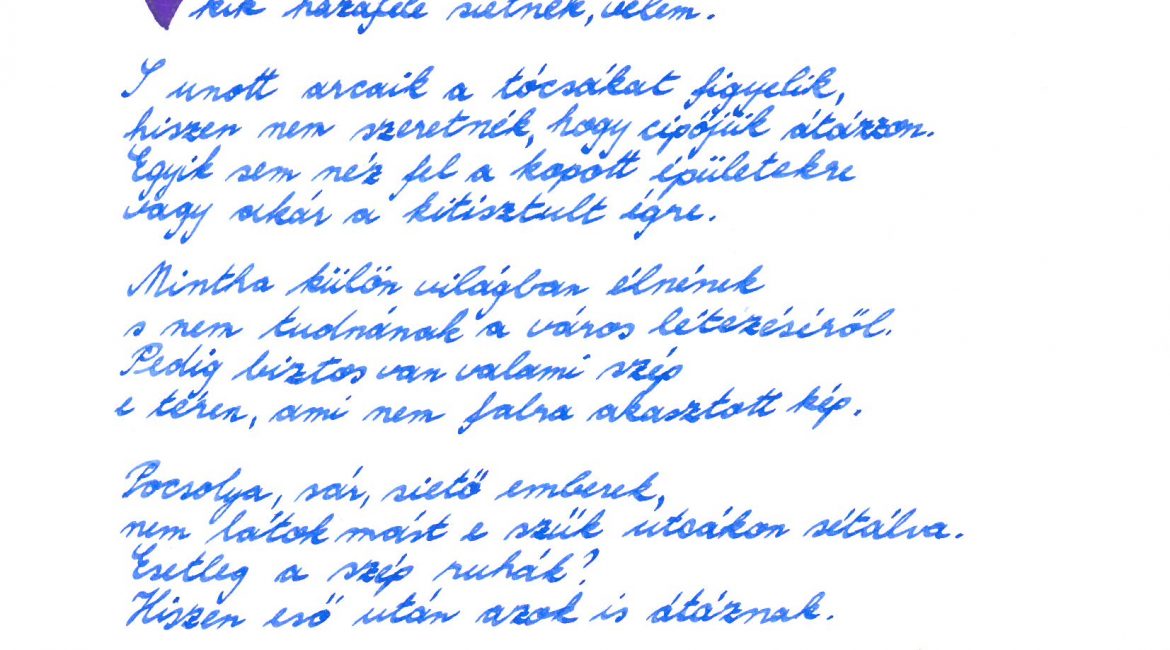 kik hazafelé sietnek, velem.
S unott arcaik a tócsákat figyelik,
hiszen nem szeretnék, hogy cipőjük átázzon.
Egyik sem néz fel a kopott épületekre
vagy akár a kitisztult égre.
Mintha külön világban élnének
s nem tudnának a város létezéséről.
Pedig biztos van valami szép
e téren, ami nem falra akasztott kép.
Pocsolya, sár, siető emberek,
nem látok mást e szűk utcákon sétálva.
Esetleg a szép ruhák?
Hiszen eső után azok is átáznak.